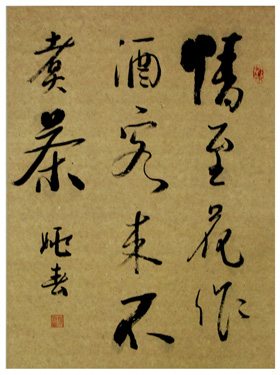 情至花作
酒客来不
煮茶